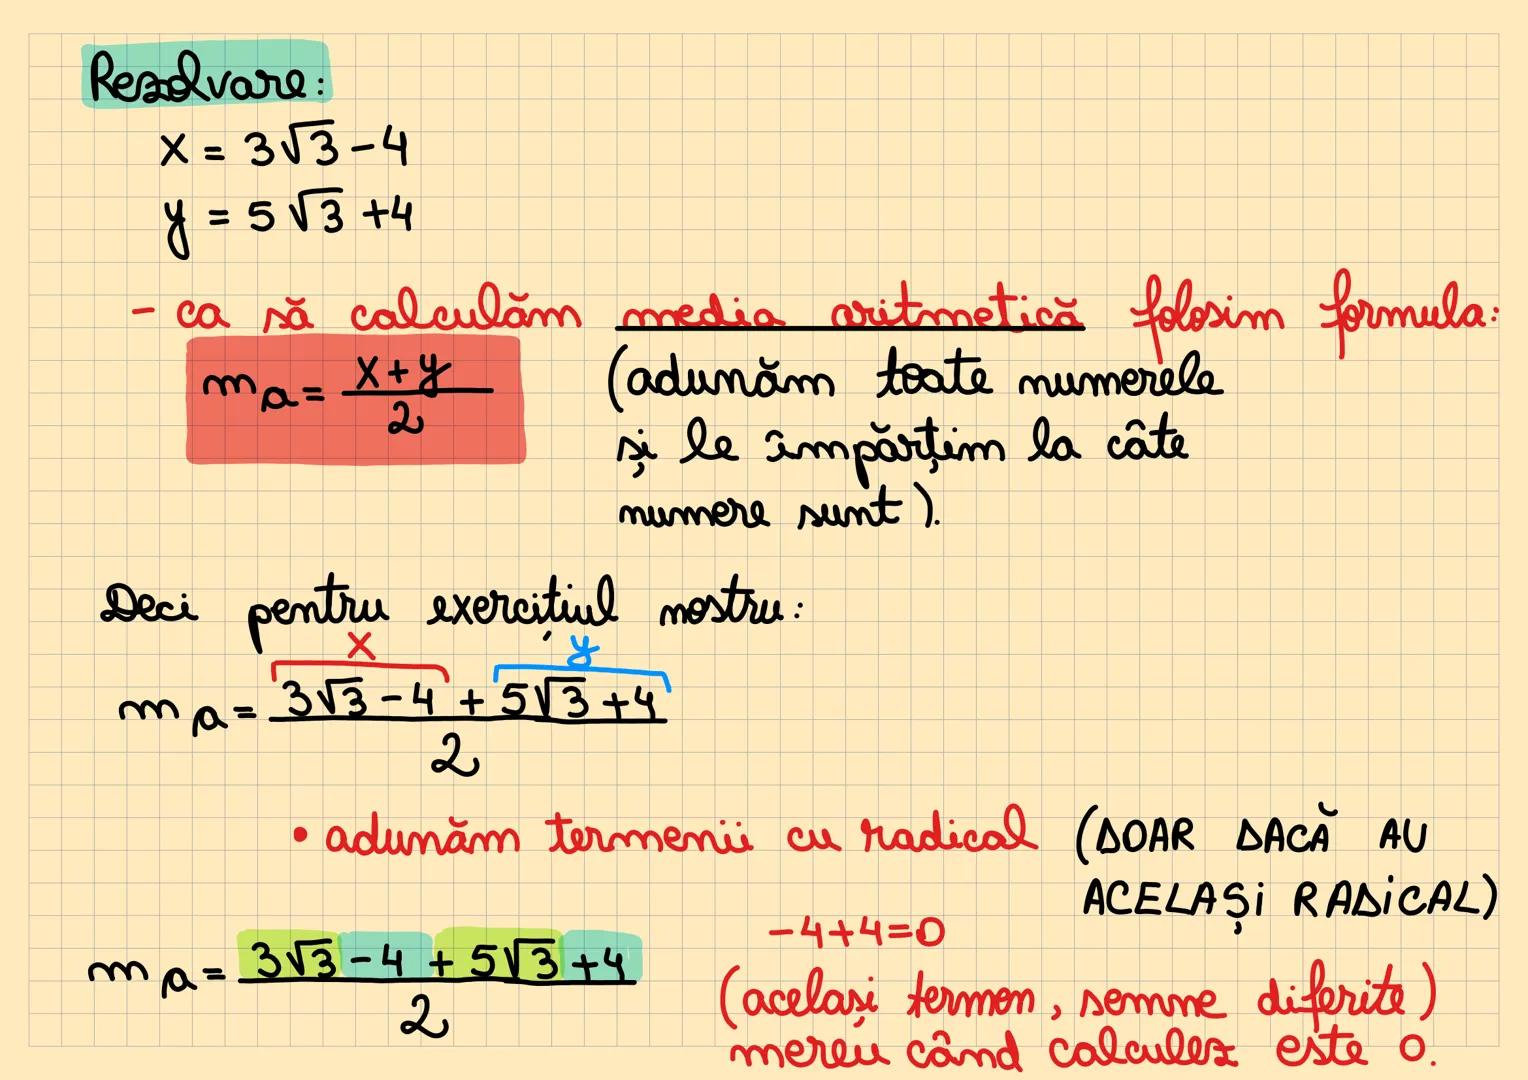 Rezolvare:
x = 3√3 - 4
y = 5√3 + 4
- ca să calculăm media aritmetică folosim formula:
m a = (x + y) / 2
(adunăm toate numerele
și le împărțim la câte
numere sunt).
Deci pentru exercițiul nostru:
x y
m a = (3√3 - 4 + 5√3 + 4) / 2
• adunăm termenii cu radical (DOAR DACĂ AU
ACELAȘI RADICAL)
m a = (3√3 - 4 + 5√3 + 4) / 2
-4+4=0
(același termen, semne diferite)
mereu când calculez este 0.